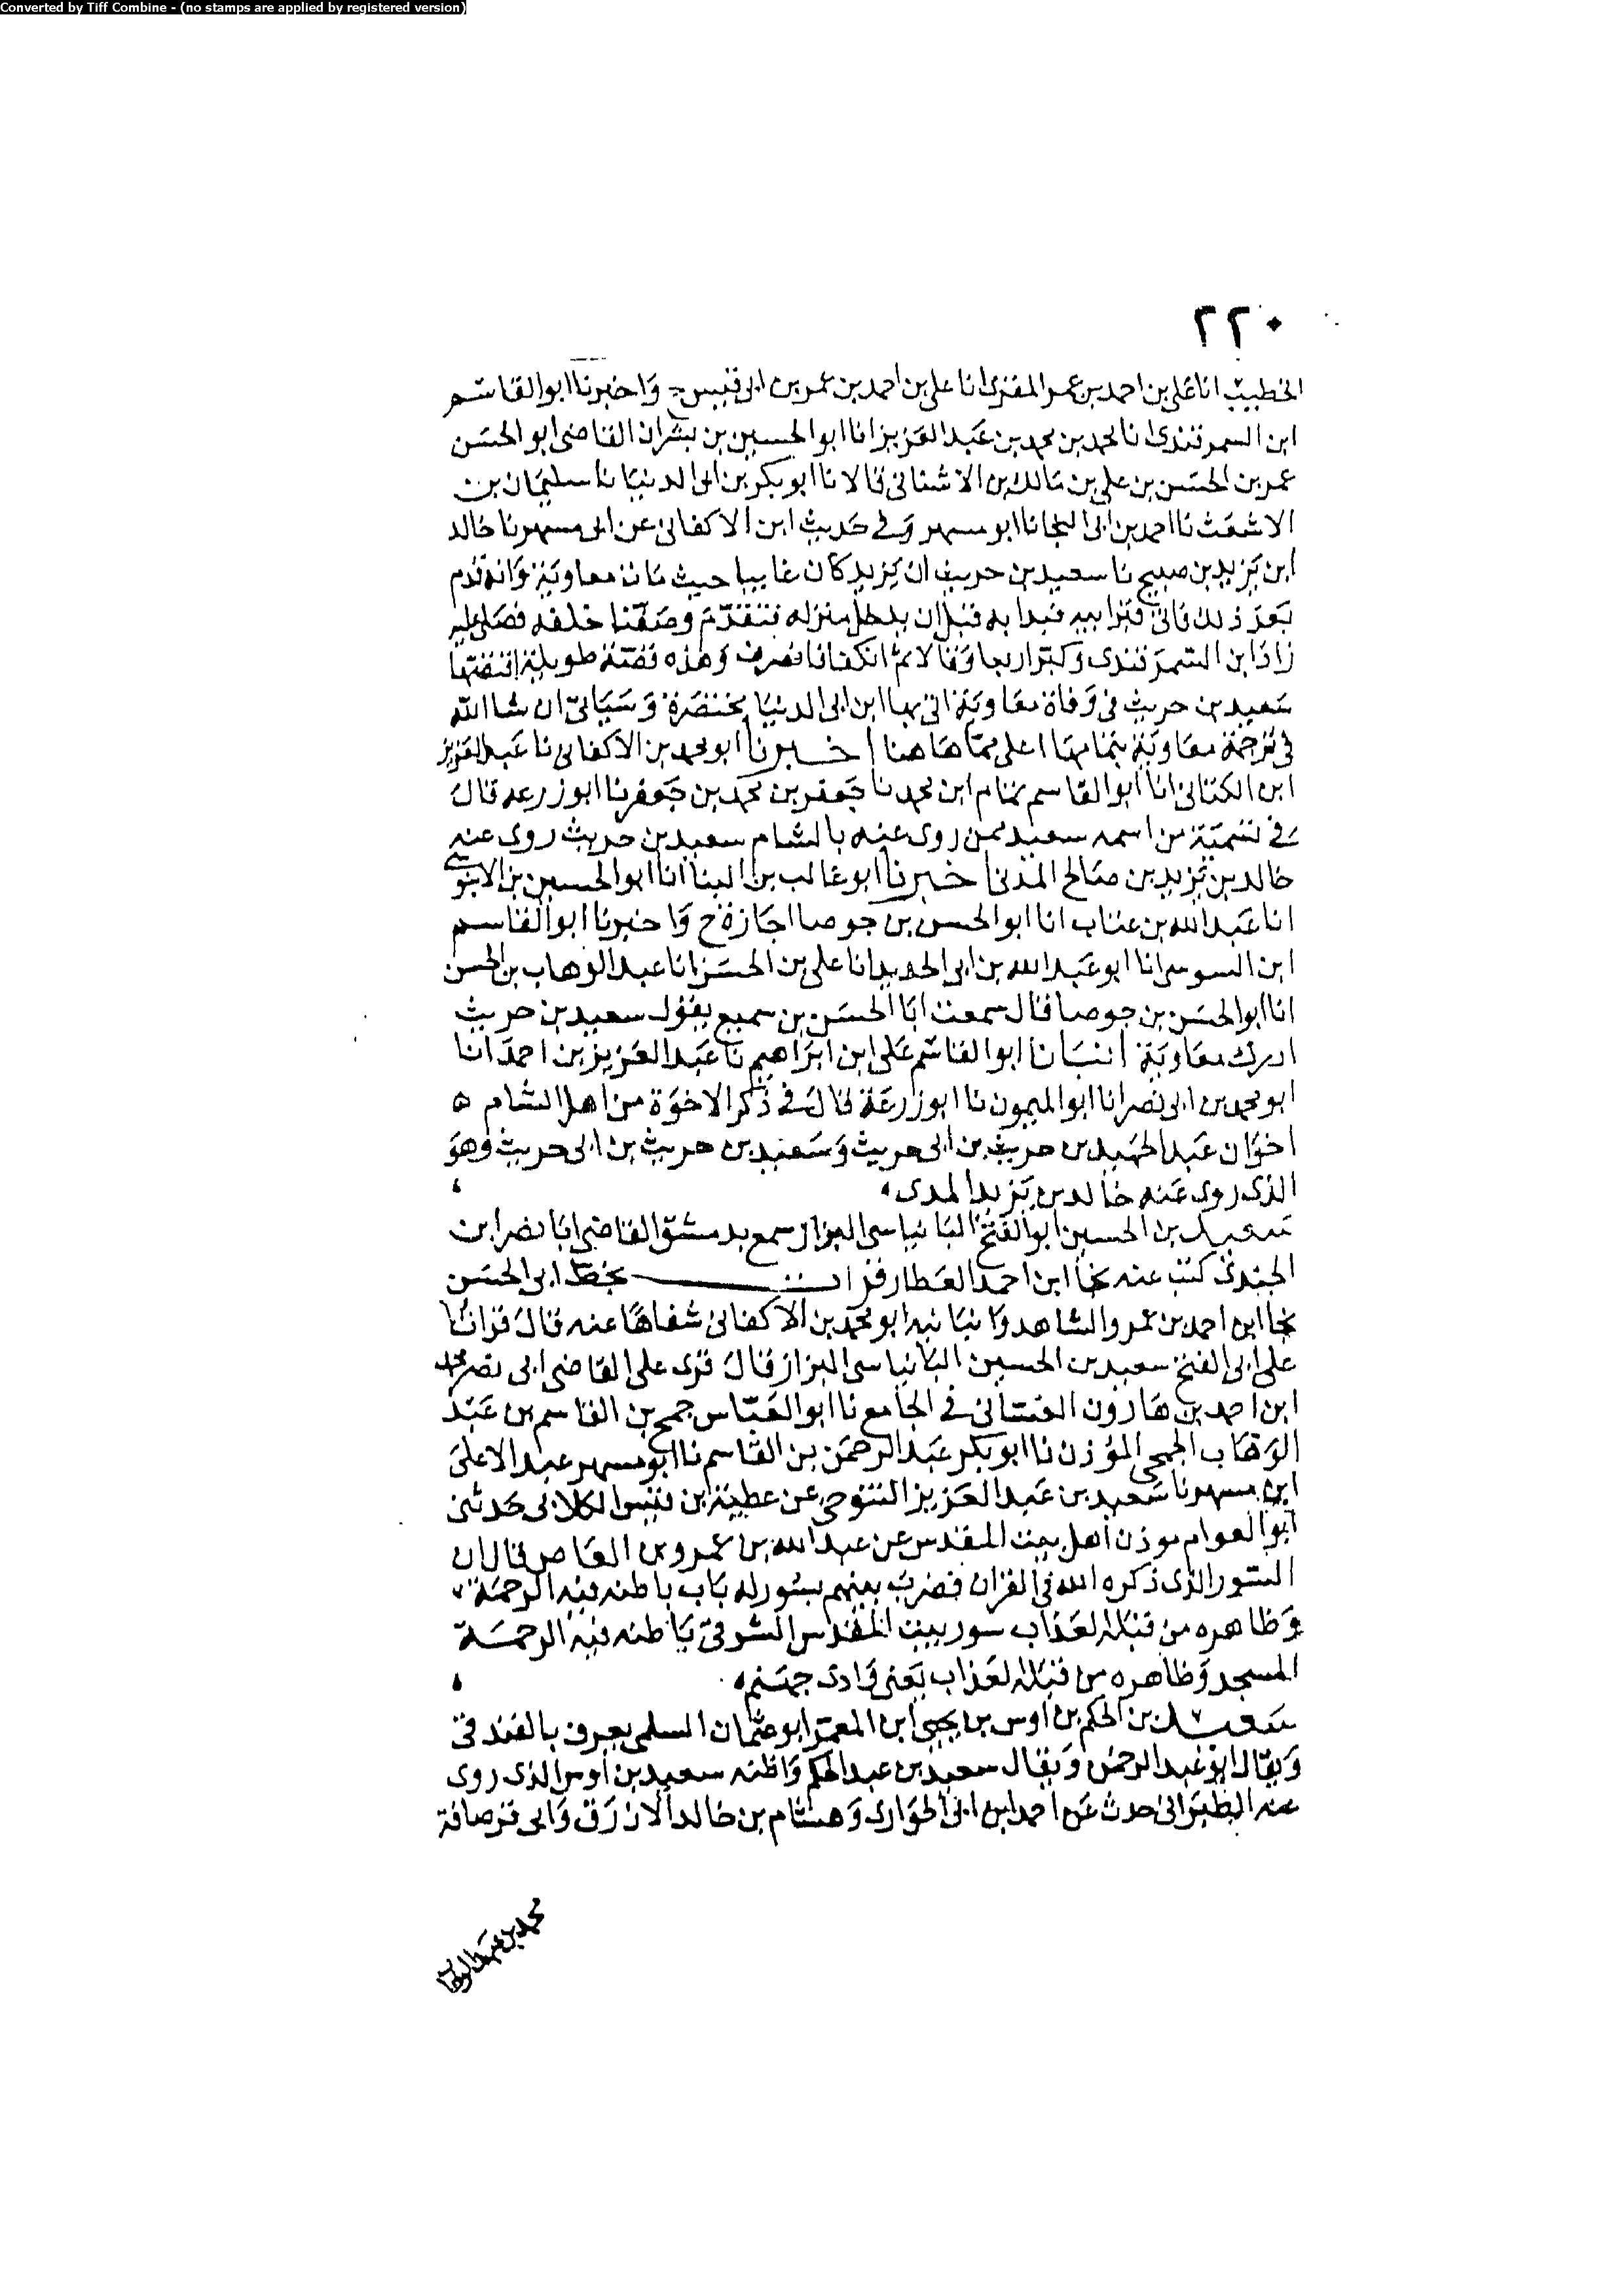 Converted by Tiff Combine - (no stamps are applied by registered version)
٢٢٠
الخطيب انا على بن احمد بن عمر المقرى انا على بن احمد بن عمر بن ابى قيس ح وَاخبرنا ابوالقاسم
ابن السمرقندى انا محمد بن محمد بن عَبد العَزيز انا ابوالحسين بن بشران القاضى ابوالحسَن
عمر بن الحسَن بن على بن مَالك بن الاشنانى قالا نا ابوبكر بن ابى الدنيَا نا سليمَان بن
الاشعَث نا احمد بن ابى ابومسهر وَفى حَديث ابن الاكفانى عن ابى مسهر نا خالد
ابن يَزيد بن صبيح نا سعيد بن حريث ان يَزيد كان غايبا حيث مَات معاويَة وَانه قدم
بَعدَ ذلك فاتى قبر ابيه فبدا به قبل ان يدخل منزله فتقدّمَ وصَفّنا خلفه فصَلى عليه
زادَ ابن السّمرَقندى وَكبّر اربعا وَقالا ثم انكفانا فصرف وَهذه قصّة طويلة اقتصّها
سَعيد بن حريث فى وَفاة معَاويَة اتى بها ابن ابى الدنيَا مختصَرة وَسَيَاتى ان شا الله
فى ترجمَة معَاويَة بتمَامهَا اعلى ممّا هَاهنا اخـبرنا ابومحمد بن الاكفانى نا عَبد العَزيز
ابن الكتانى انا ابوالقاسم تمام ابن محمد نا جَعفر بن محمد بن جَعفر نا ابوزرعه قال
فى تسميَة من اسمه سعيد ممن روى عنه بالشام سعيد بن حريث روى عنه
خالد بن يَزيد بن صَالح المدنى اخبرنا ابوغالب بن البنا انا ابوالحسين بن الابنوسى
انا عَبد الله بن عتاب انا ابوالحسن بن جوصا اجَازة ح وَاخبرنا ابوالقاسم
ابن السوسى انا ابوعَبد الله بن ابى الحديد انا على بن الحسَن انا عبد الوهاب بن الحسن
انا ابوالحسَن بن جوصا قال سمعت ابَا الحسَن بن سميع يقول سعيد بن حريث
ادرك معَاويَة انبانا ابوالقاسم عَلى ابن ابرَاهيم نا عَبد العَزيز بن احمدَ انا
ابومحمد بن ابى نصر انا ابوالميمون نا ابوزرعَة قال فى ذكر الاخوَة من اهل الشام ه
اخوَان عَبد الحميد بن حريث بن ابى حريث وَسَعيد بن حريث بن ابى حريث وهوَ
الذى روى عَنه خالد بن يَزيد المدى
سعيـد بن الحسين ابوالفتح البَانياسى البزاز سمع بدمشق القاضى ابَا نصر ابن
الجندى كتب عنه نجا ابن احمد العَطار قرات بخط ابى الحسَن
نجا ابن احمد بن عمرو الشاهد وَانبانيه ابومحمد بن الاكفانى شفاهًا عنه قال قرانا
على ابى الفتح سعيد بن الحسين البَانياسى البزاز قال قرى على القاضى ابى نصر محمد
ابن احمد بن هَارون الغسّانى فى الجَامع نا ابوالعَبّاس جمح بن القاسم بن عَبْد
الوَهّاب الجمحى المؤذن نا ابوبكر عَبد الرحمَن بن القَاسم نا ابومسهر عبد الاعلى
ابن مسهر نا سَعيد بن عَبد العَزيز التنوخى عن عطية ابن قيس الكلابى حَدثنى
ابوالعوام موذن اهل بيت المقدس عن عبد الله بن عمرو بن العَاص قال ان
السّور الذى ذكره الله فى القران فضرب بينهم بسُور له بَاب باطنه فيه الرحمَة
وَظاهره من قبَله العَذاب سور بيت المقدس الشرقى بَاطنه فيه الرحمَـة
المسجد وَظاهره من قبَله العَذاب يَعنى وَادى جهنم
سَعيـد بن الحكم بن اوس بن يحيى ابن المعمّر ابوعثمان السلمى يعرف بالفندقى
وَيقال ابوعَبد الرحمن وَيقال سعيد بن عبد الحكم وَاظنه سعيد بن اوس الذى روى
عنه الطبَرَانى حدث عَن احمد ابن ابى الحوَارى وَهشام بن خالد الازرَق وَابى قرصافة
محمد بن عبد الوهاب